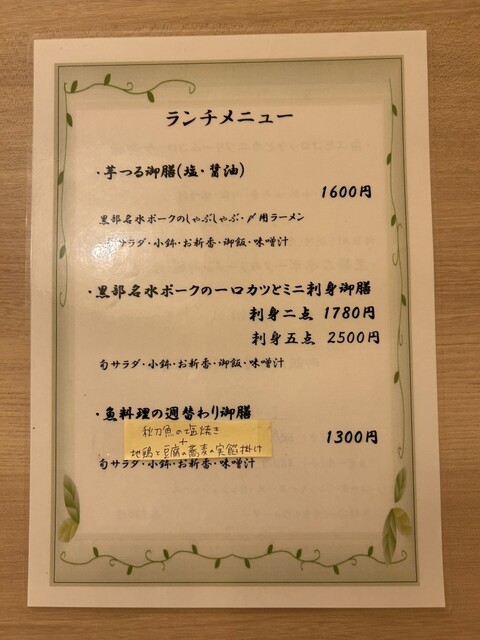 ランチメニュー
・芋つる御膳(塩・醤油)
1600円
黒部名水ポークのしゃぶしゃぶ・〆用ラーメン
旬サラダ・小鉢・お新香・御飯・味噌汁
・黒部名水ポークの一口カツとミニ刺身御膳
刺身二点 1780円
刺身五点 2500円
旬サラダ・小鉢・お新香・御飯・味噌汁
・魚料理の週替わり御膳
秋刀魚の塩焼き
+
地鶏と豆腐の蕎麦の実餡掛け
1300円
旬サラダ・小鉢・お新香・御飯・味噌汁